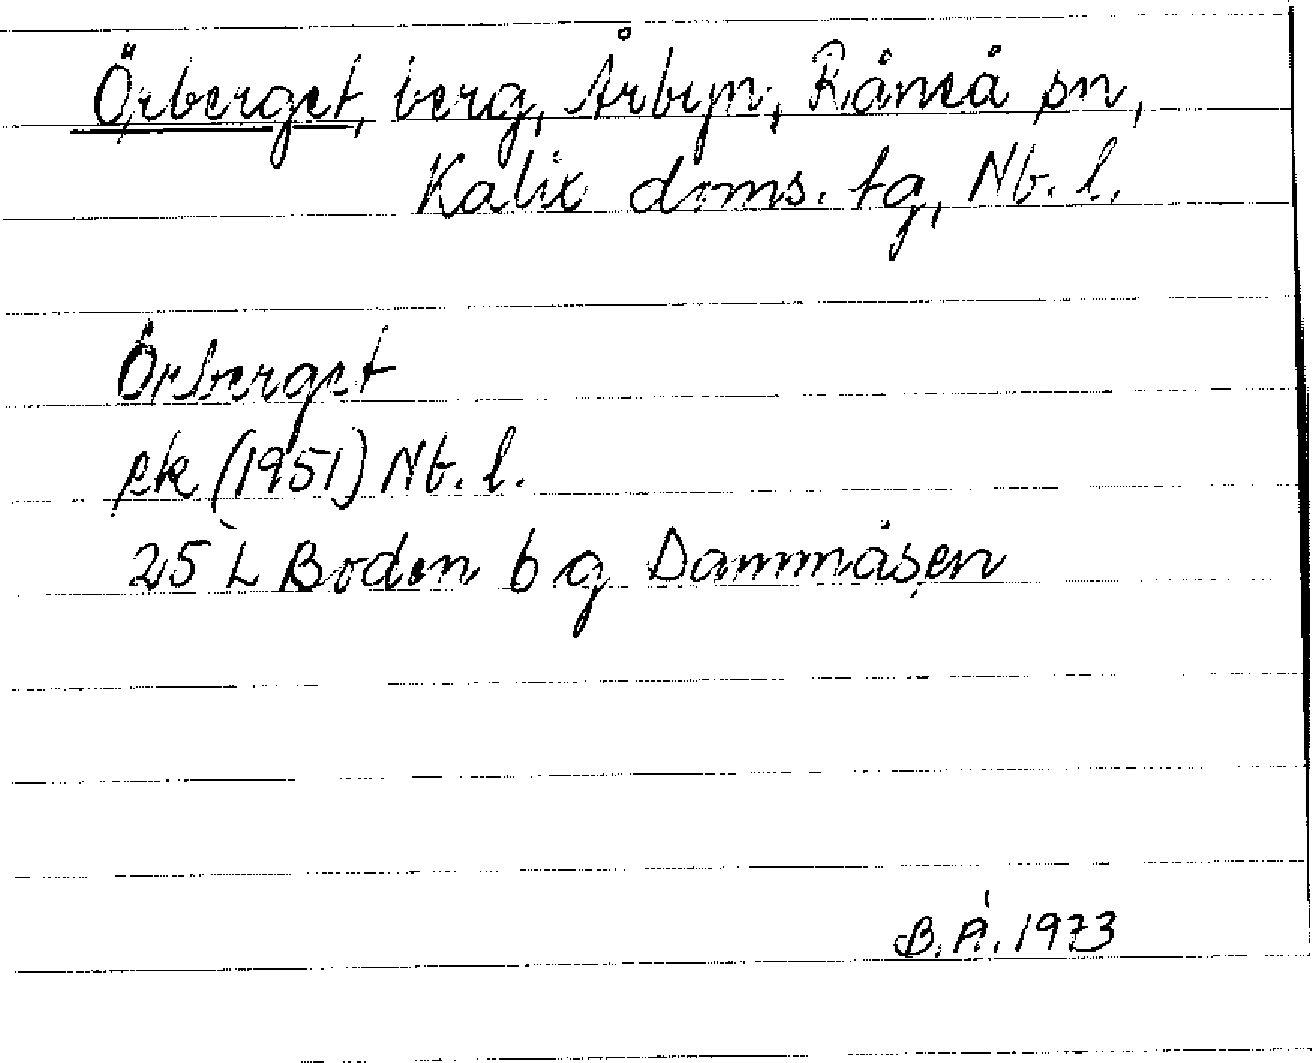 Örberget, berg, Årbyn, Råneå sn,
Kalix doms. tg, Nb. l.
Örberget
ek (1951) Nb. l.
25 L Boden b g Dammåsen
B.Å. 1973